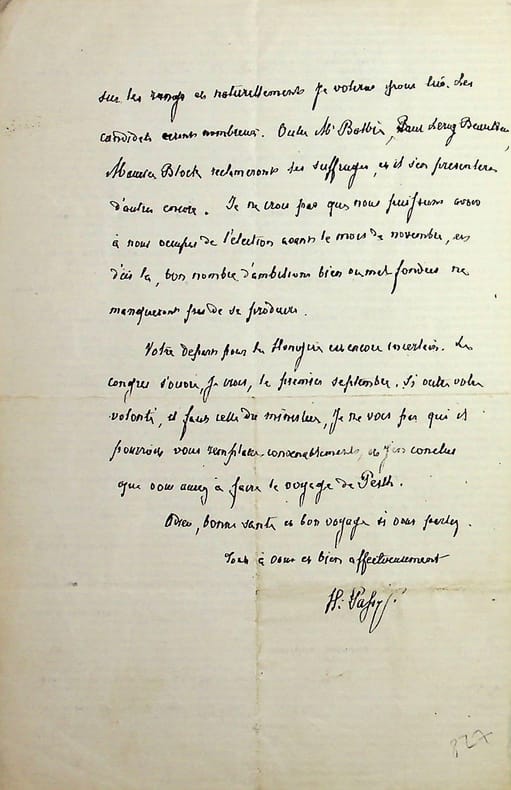 sur les rangs et naturellement je voterai pour lui. Les
candidats seront nombreux. Outre Mr Batbie, Paul Leroy Beaulieu,
Maurice Block réclameront les suffrages, et il s'en présentera
d'autres encore. Je ne crois pas que nous puissions avoir
à nous occuper de l'élection avant le mois de novembre, et
d'ici là, bon nombre d'ambitions bien ou mal fondées ne
manqueront pas de se produire.
Votre départ pour la Hongrie est encore incertain. Le
congrès s'ouvre, je crois, le premier septembre. Si outre votre
volonté, il faut celle du ministère, je ne vois pas qui
pourrait vous remplacer convenablement, et j'en conclus
que vous aurez à faire le voyage de Pesth.
Adieu, bonne santé et bon voyage si vous partez.
Tout à vous et bien affectueusement
H. Passy
827